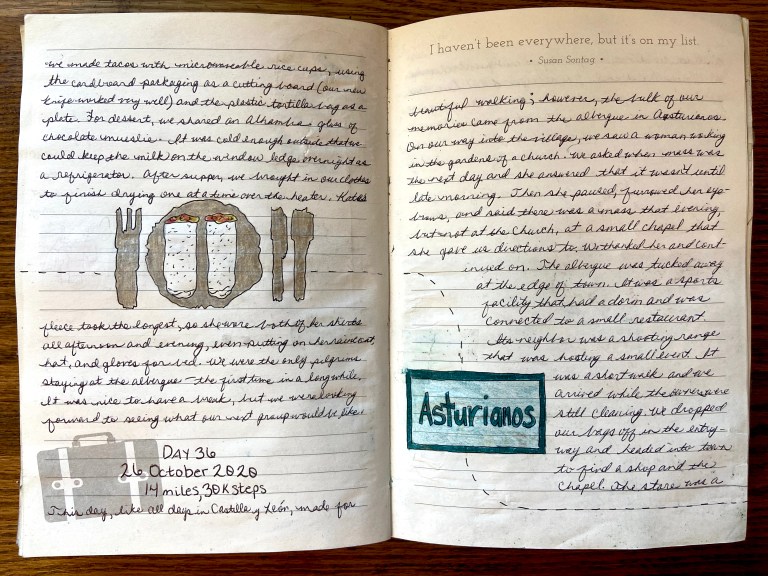 we made tacos with microwaveable rice cups, using
the cardboard packaging as a cutting board (our new
knife worked very well) and the plastic tortilla bag as a
plate. For dessert, we shared an Alhambra glass of
chocolate mueslie. It was cold enough outside that we
could keep the milk on the window ledge overnight as
a refrigerator. After supper, we brought in our clothes
to finish drying one at a time over the heater. Kates
fleece took the longest, so she wore both of her shirts
all afternoon and evening, even putting on her raincoat,
hat, and gloves for bed. We were the only pilgrims
staying at the albergue—the first time in a long while.
It was nice to have a break, but we were looking
forward to seeing what our next group would be like!
DAY 36
26, October 2020
14 miles, 30K steps
This day, like all days in Castilla y León, made for
I haven't been everywhere, but it's on my list.
• Susan Sontag •
beautiful walking; however, the bulk of our
memories came from the albergue in Asturianos.
On our way into the village, we saw a woman working
in the gardens of a church. We asked when mass was
the next day and she answered that it wasn't until
late morning. Then she paused, furrowed her eye-
brows, and said there was a mass that evening,
but not at the church, at a small chapel that
she gave us directions to. We thanked her and cont-
inued on. The albergue was tucked away
at the edge of town. It was a sports
facility that had a dorm and was
connected to a small restaurant.
Its neighbor was a shooting range
that was hosting a small event. It
was a short walk and we
arrived while the owners were
still cleaning. We dropped
our bags off in the entry-
way and headed into town
to find a shop and the
chapel. The store was a
Asturianos